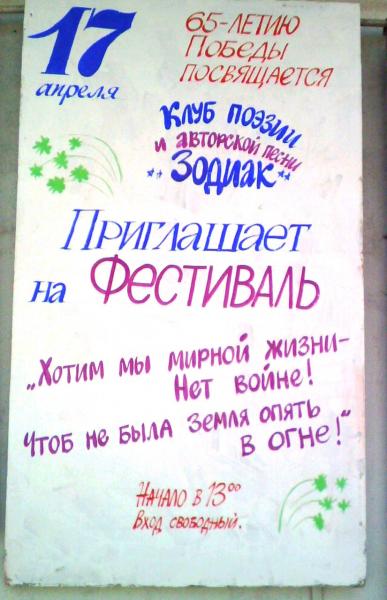 17
апреля
65-летию
Победы
посвящается
Клуб поэзии
и авторской песни
"Зодиак"
Приглашает
на Фестиваль
„Хотим мы мирной жизни-
Нет войне!
Чтоб не была Земля опять
в огне!"
Начало в 13⁰⁰
Вход свободный.